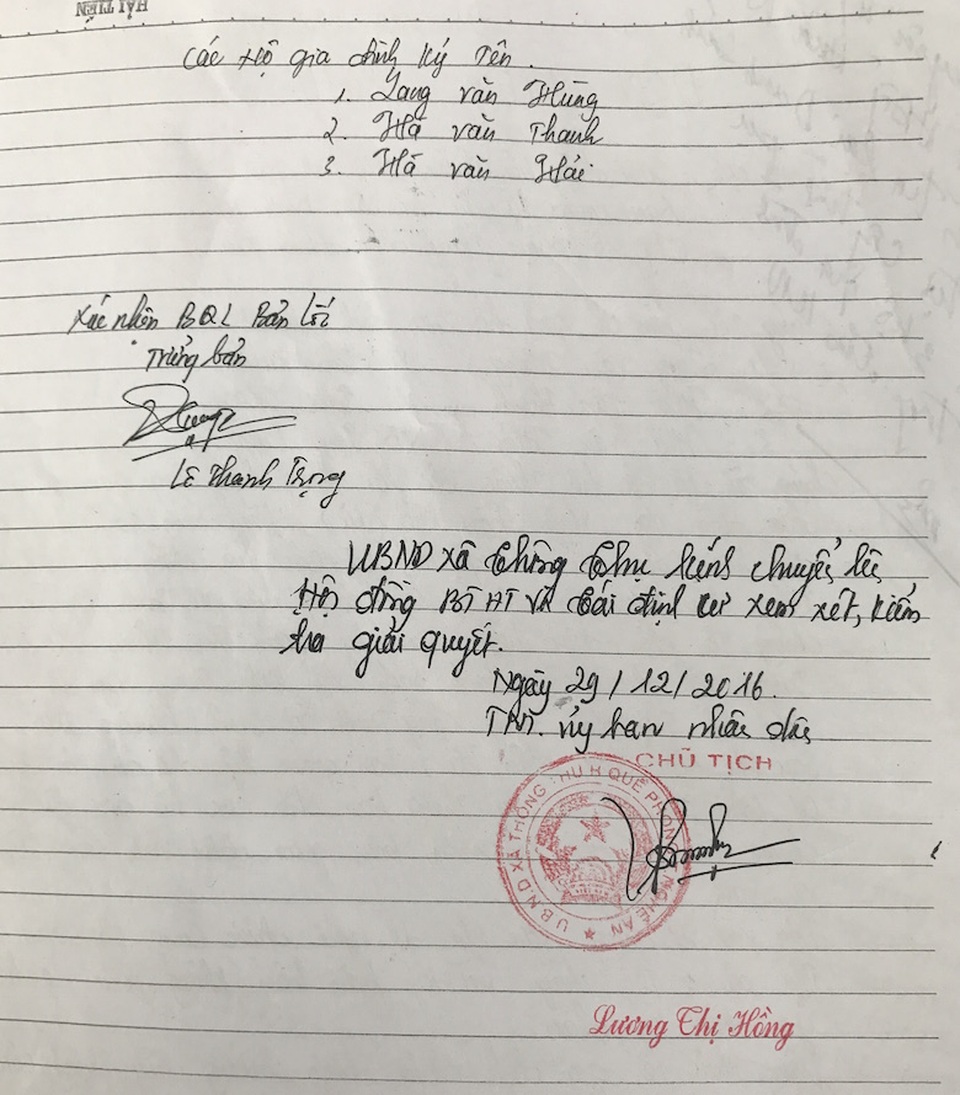 HẢI TIẾN
Các Hộ gia đình ký tên.
1. Lang văn Hùng
2. Hà văn Thanh
3. Hà văn Hải
Xác nhận BQL Bản Lốc
Trưởng bản
Lê Thanh Trọng
UBND xã thông thụ kính chuyển lên
Hội đồng BT HT và tái định cư xem xét, kiểm
tra giải quyết.
Ngày 29/12/2016.
TM. ủy ban nhân dân
CHỦ TỊCH
U.B.N.D XÃ THÔNG THỤ H QUẾ PHONG NGHỆ AN
Lương Thị Hồng